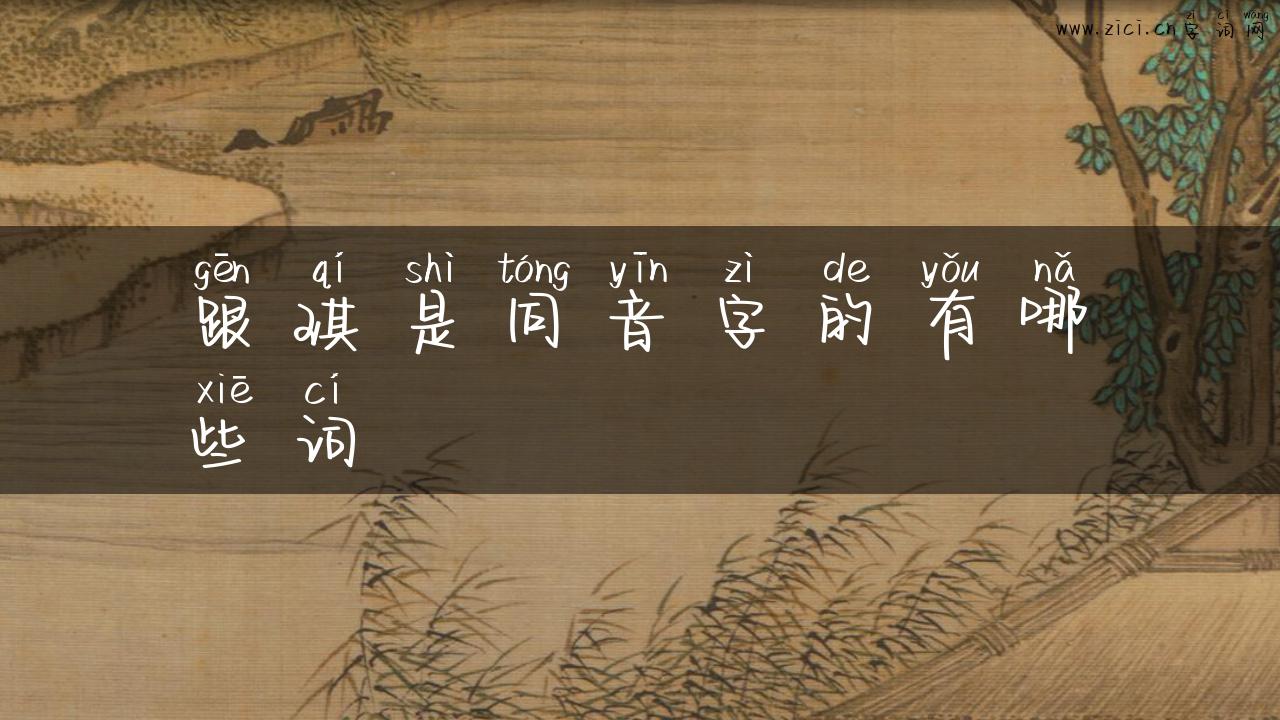 zì cí wǎng
www.zici.cn字词网
gēn qí shì tóng yīn zì de yǒu nǎ
跟琪是同音字的有哪
xiē cí
些词